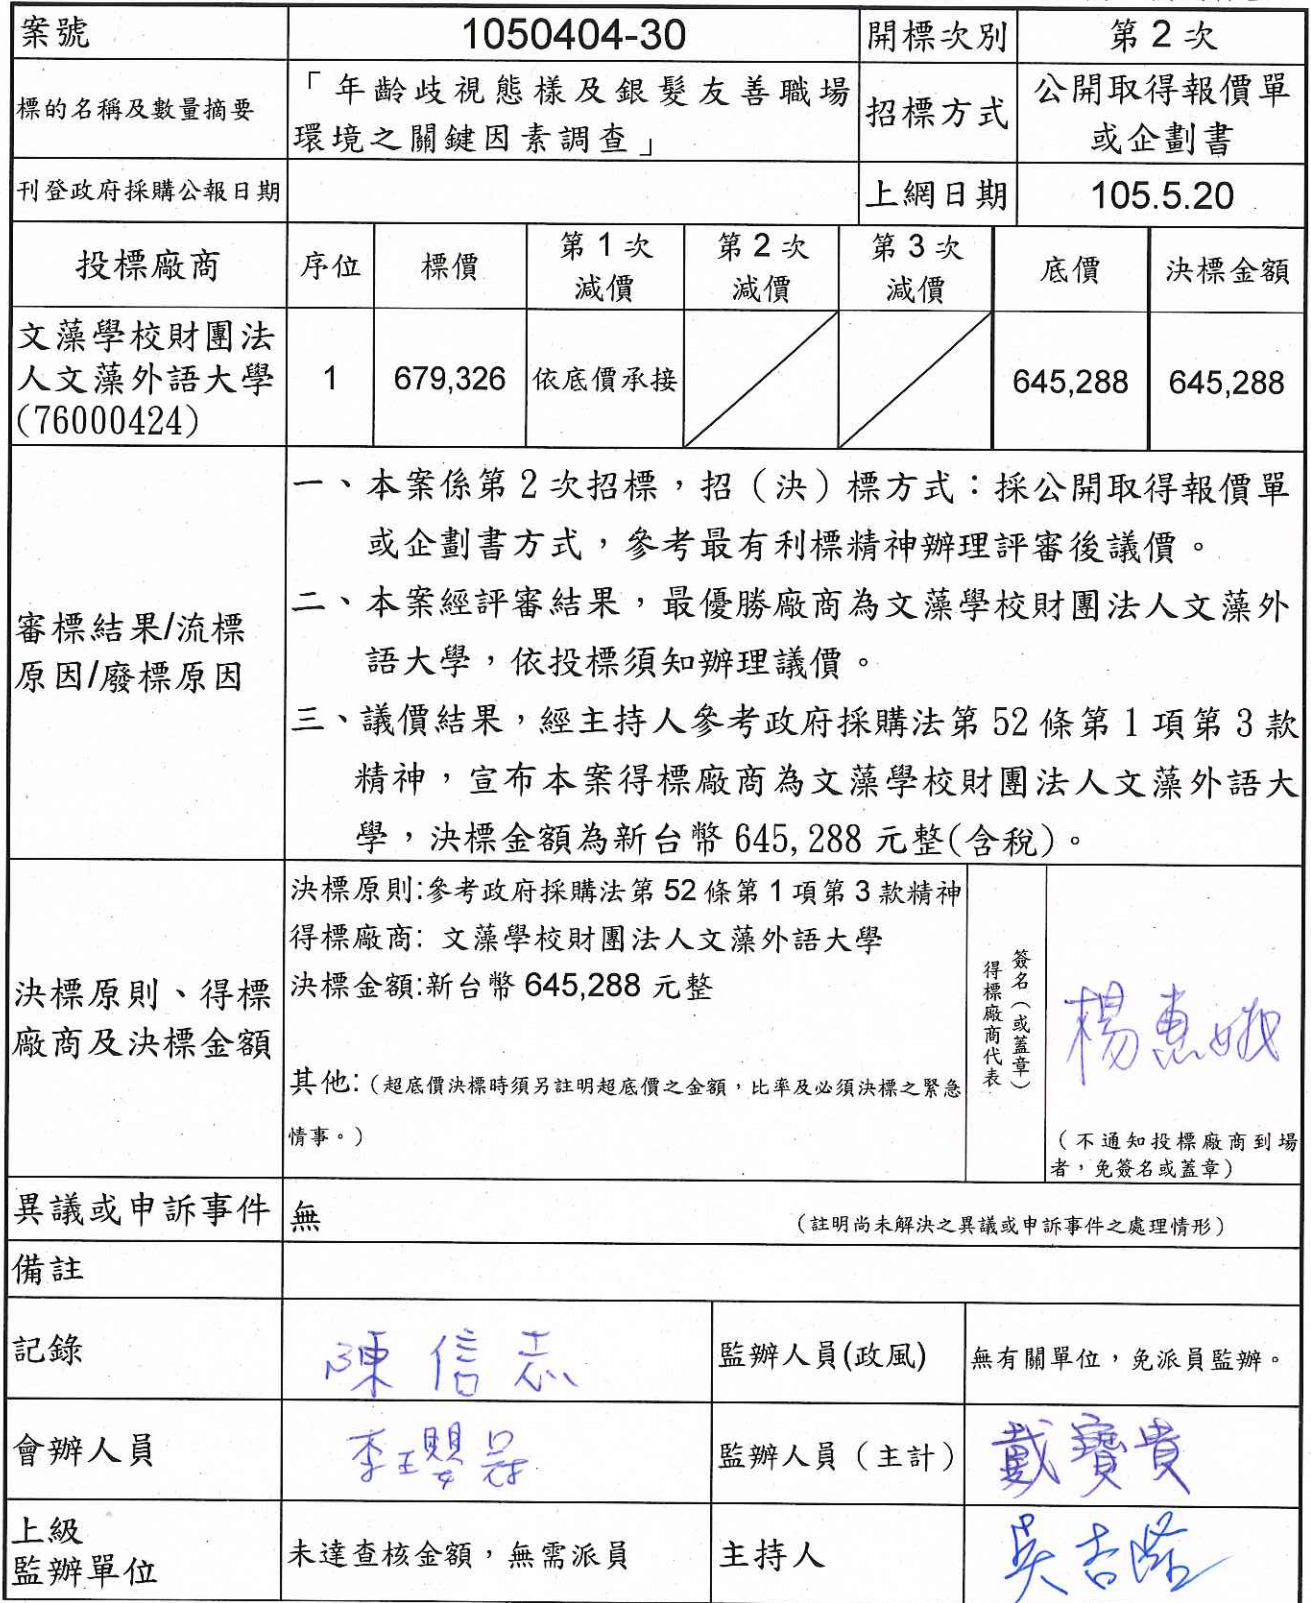 案號 1050404-30 開標次別 第2次
標的名稱及數量摘要 「年齡歧視態樣及銀髮友善職場
環境之關鍵因素調查」
招標方式 公開取得報價單
或企劃書
刊登政府採購公報日期 上網日期 105.5.20
投標廠商 序位 標價 第1次
減價 第2次
減價 第3次
減價 底價 決標金額
文藻學校財團法
人文藻外語大學
(76000424)
1 679,326 依底價承接 645,288 645,288
審標結果/流標
原因/廢標原因
一、本案係第2次招標，招（決）標方式：採公開取得報價單
或企劃書方式，參考最有利標精神辦理評審後議價。
二、本案經評審結果，最優勝廠商為文藻學校財團法人文藻外
語大學，依投標須知辦理議價。
三、議價結果，經主持人參考政府採購法第52條第1項第3款
精神，宣布本案得標廠商為文藻學校財團法人文藻外語大
學，決標金額為新台幣645,288元整(含稅)。
決標原則、得標
廠商及決標金額
決標原則:參考政府採購法第52條第1項第3款精神
得標廠商: 文藻學校財團法人文藻外語大學
決標金額:新台幣645,288元整
其他:（超底價決標時須另註明超底價之金額，比率及必須決標之緊急
情事。）
得標廠商代表
簽名（或蓋章）
楊惠娥
（不通知投標廠商到場
者，免簽名或蓋章）
異議或申訴事件 無 （註明尚未解決之異議或申訴事件之處理情形）
備註
記錄 陳信志 監辦人員(政風) 無有關單位，免派員監辦。
會辦人員 李瓔 監辦人員（主計） 戴寶貴
上級
監辦單位
未達查核金額，無需派員 主持人 吳